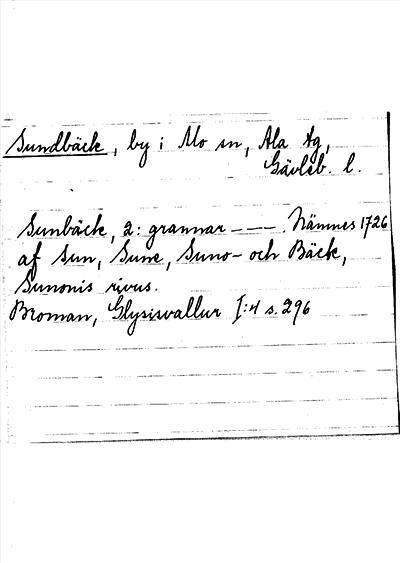 Sundbäck, by i Mo sn, Ala tg,
Gävleb. l.
Sunbäck, 2: grannar --- Nämnes 1726
af Sun, Sune, Suno- och Bäck,
Sunonis rivus.
Broman, Glysisvallur I:4 s. 296